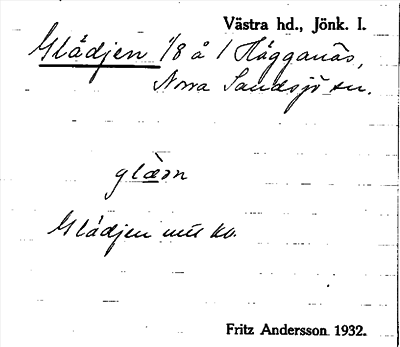 Västra hd., Jönk. l.
Glädjen 1/8 å 1 Hägganäs,
Norra Sandsjö sn.
glæm
Glädjen mtl kv.
Fritz Andersson 1932.